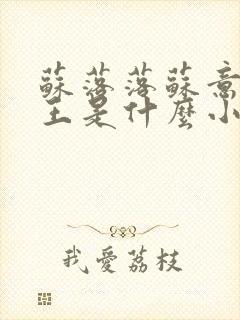 蘇落落蘇意
主是什麼小
我愛荔枝